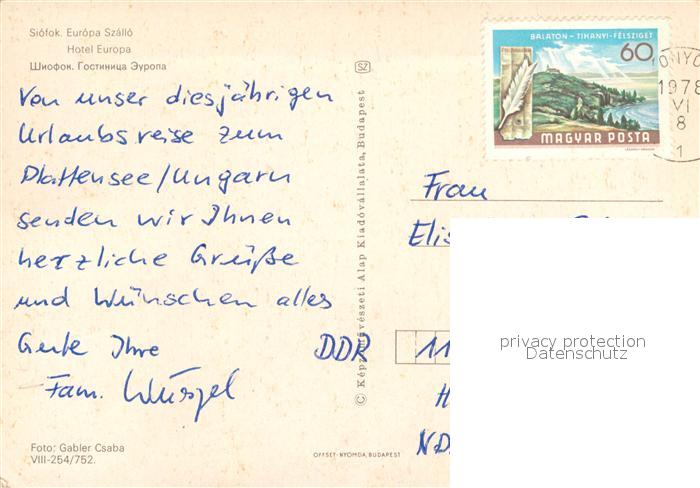 Siófok. Európa Szálló
Hotel Europa
Шиофок. Гостиница Эуропа
Von unser diesjährigen
Urlaubsreise zum
Plattensee/Ungarn
senden wir Ihnen
herzliche Grüße
und Wünschen alles
Gute Ihre
Fam.
Foto: Gabler Csaba
VIII-254/752.
SZ
© Képzőművészeti Alap Kiadóvállalata, Budapest
OFFSET-NYOMDA, BUDAPEST
BALATON – TIHANYI-FÉLSZIGET
60
MAGYAR POSTA
1978
VI
8
1
Frau
DDR 11
privacy protection
Datenschutz